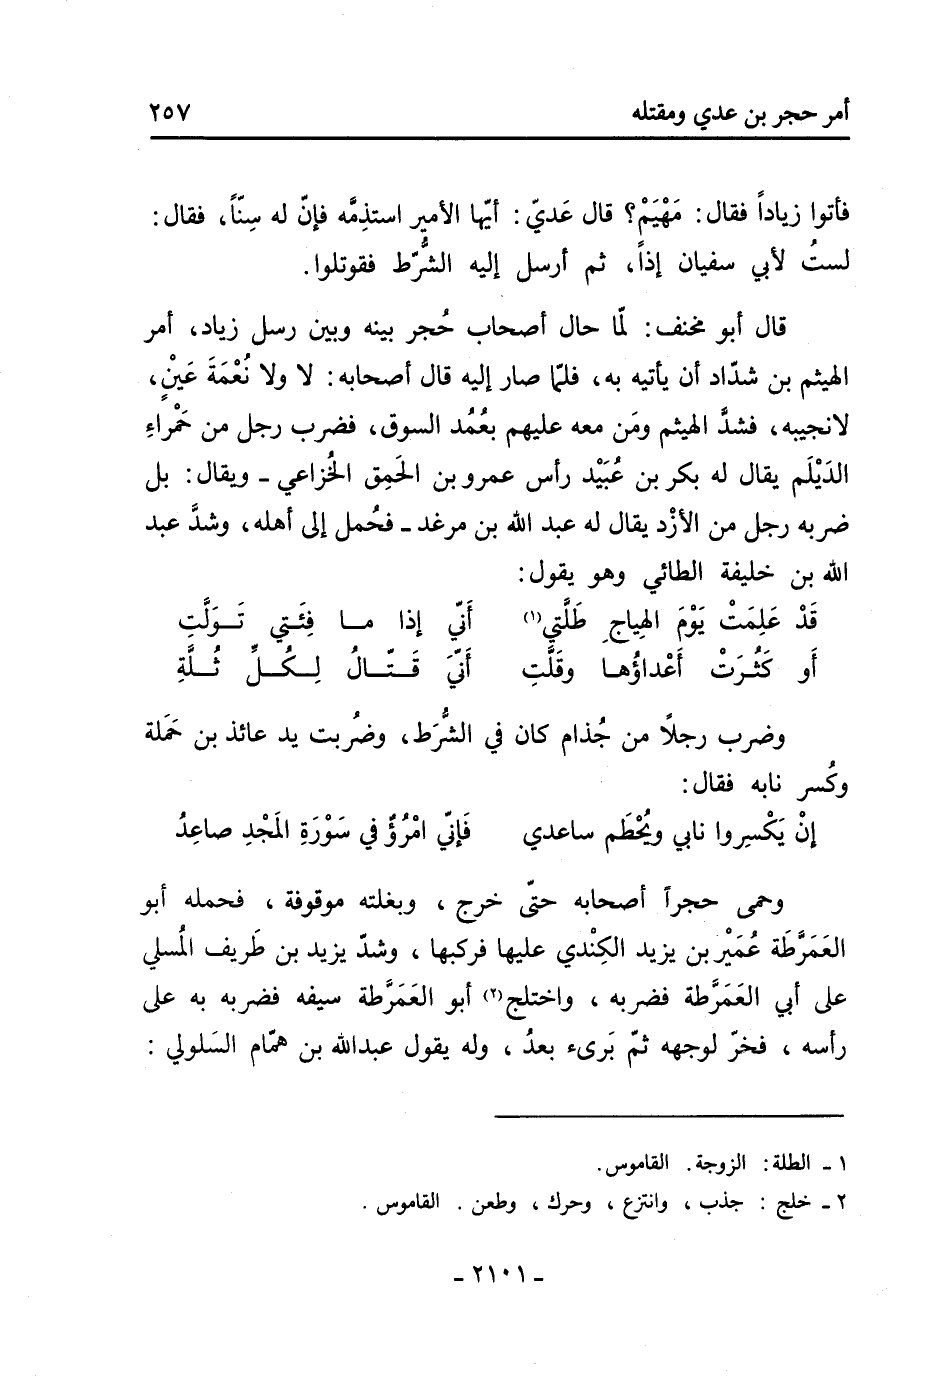 أمر حجر بن عدي ومقتله ٢٥٧
فأتوا زياداً فقال: مَهْيَمْ؟ قال عَديّ: أيّها الأمير استذِمَّه فإنّ له سِنّاً، فقال:
لستُ لأبي سفيان إذاً، ثم أرسل إليه الشُّرَط فقوتلوا.
قال أبو مخنف: لمّا حال أصحاب حُجر بينه وبين رسل زياد، أمر
الهيثم بن شدّاد أن يأتيه به، فلمّا صار إليه قال أصحابه: لا ولا نُعْمَةَ عَيْنٍ،
لانجيبه، فشدَّ الهيثم ومَن معه عليهم بعُمُد السوق، فضرب رجل من حَمْراءِ
الدَيْلَم يقال له بكر بن عُبَيْد رأس عمرو بن الحَمِق الخُزاعي ـ ويقال: بل
ضربه رجل من الأزْد يقال له عبد الله بن مرغد ـ فحُمل إلى أهله، وشدَّ عبد
الله بن خليفة الطائي وهو يقول:
قَدْ عَلِمَتْ يَوْمَ الهِياجِ طَلَّتي(١) أَنّي إذا مـا فِئَـتي تَـوَلَّتِ
أَو كَثُـرَتْ أَعْداؤُهـا وقَلَّتِ أَنّيَ قَـتّـالُ لِـكُـلِّ ثُـلَّةِ
وضرب رجلاً من جُذام كان في الشُّرَط، وضُربت يد عائذ بن حَمَلة
وكُسر نابه فقال:
إنْ يَكْسِروا نابي ويُحْطَم ساعدي فَإنّي امْرُؤٌ في سَوْرَةِ المَجْدِ صاعِدُ
وحمى حجراً أصحابه حتّى خرج ، وبغلته موقوفة ، فحمله أبو
العَمَرَّطَة عُمَيْر بن يزيد الكِنْدي عليها فركبها ، وشدّ يزيد بن طَريف المُسلي
على أبي العَمَرَّطة فضربه ، واختلج(٢) أبو العَمَرَّطة سيفه فضربه به على
رأسه ، فخرّ لوجهه ثمّ بَرىء بعدُ ، وله يقول عبدالله بن همّام السَلولي :
١ ـ الطلة: الزوجة. القاموس.
٢ ـ خلج : جذب ، وانتزع ، وحرك ، وطعن . القاموس .
ـ ٢١٠١ ـ